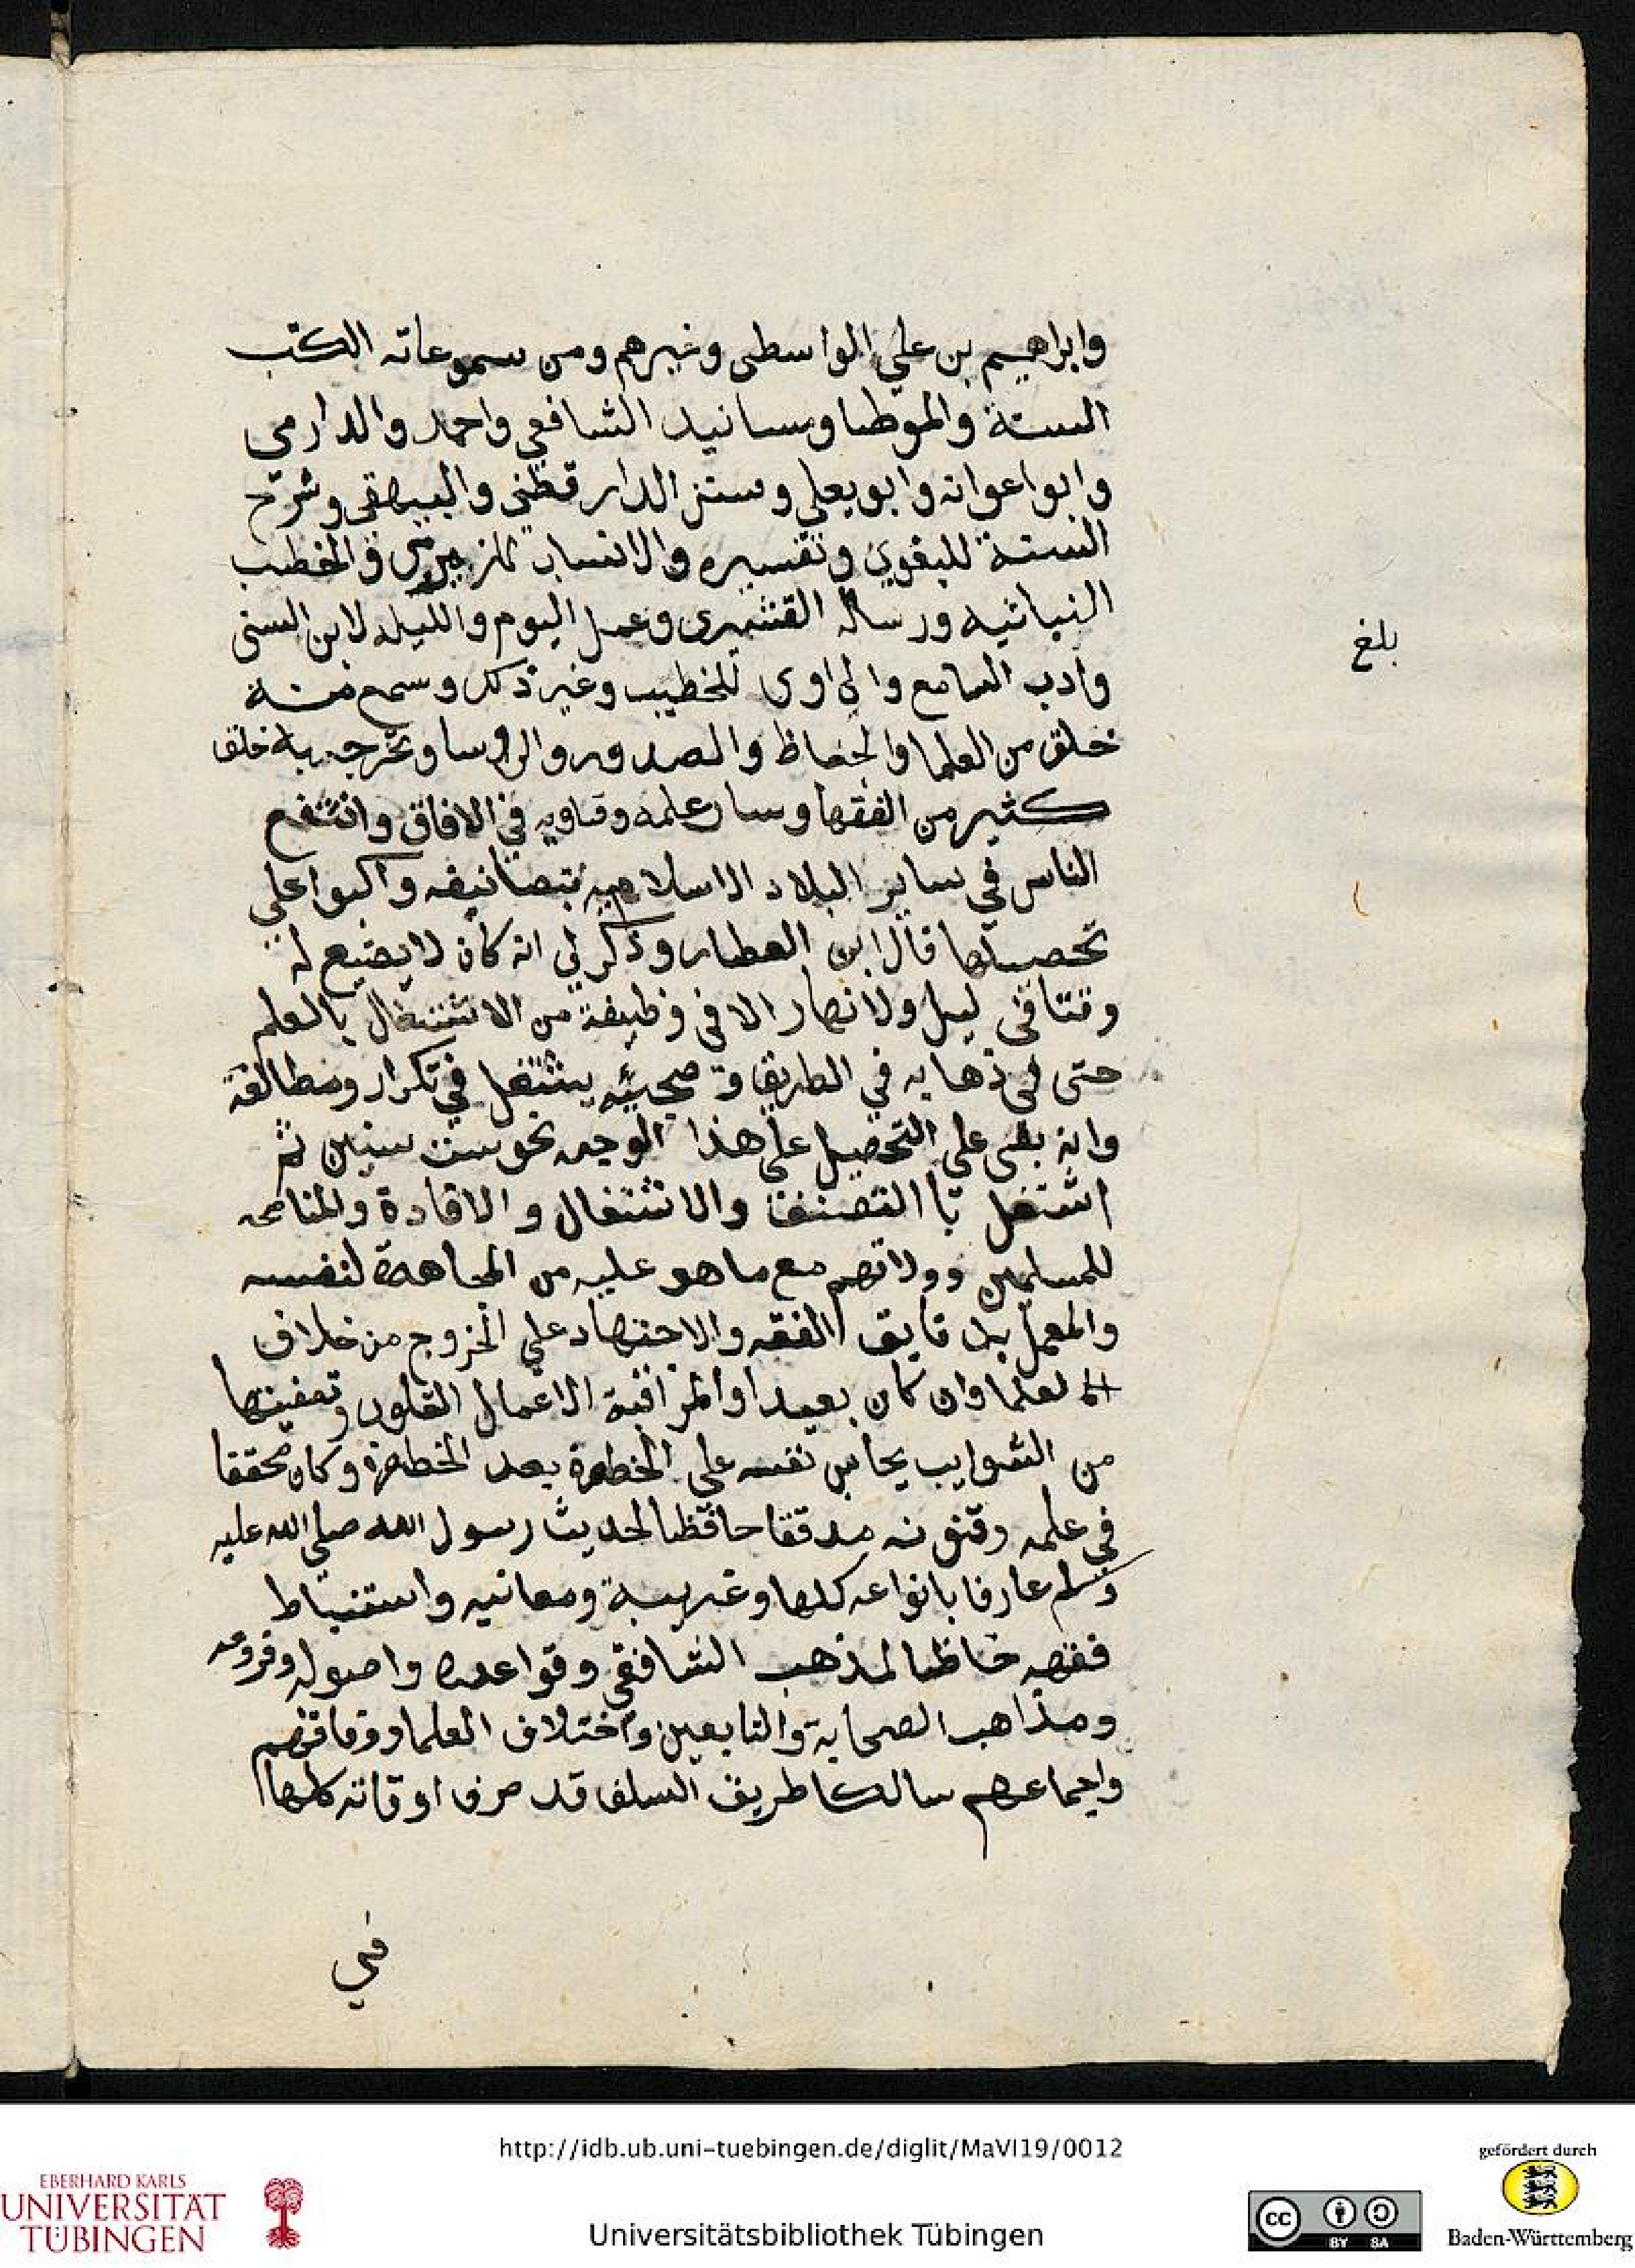 وابراهيم بن علي الواسطى وغيرهم ومن سموعاته الكتب
الستة والموطا ومسانيد الشافعي واحمد والدارمي
وابواعوانه وابو يعلي وسنن الدار قطني والبيهقي وشرح
السنة للبغوي وتفسيره والانساب للزبيري والخطب
النباتيه ورسالة القشيرى وعمل اليوم والليله لابن السنى
وادب السامع والراوى للخطيب وغير ذلك وسمع منه
خلق من العلما والحفاظ والصدور والروسا وتخرج به خلق
كثير من الفقها وسار علمه وفتاويه في الافاق وانتفع
الناس في ساير البلاد الاسلاميه بتصانيفه واكبوا علي
تحصيلها قال ابن العطار وذكر لي انه كان لا يضيع له
وقتا في ليل ولا نهار الا في وظيفة من الاشتغال بالعلم
حتى في ذهابه في الطريق و مجيئه يشتغل في تكرار ومطالعة
وانه بقى علي التحصيل علي هذا الوجه نحو ست سنين ثم
اشتغل باالتصنيف والاشتغال والافادة والمناصحه
للمسلمين وولاتهم مع ما هو عليه من المجاهدة لنفسه
والعمل بدقايق الفقه والاجتهاد علي الخروج من خلاف
العلما وان كان بعيدا والمراقبة الاعمال القلوب وتصفيتها
من الشوايب يحاسب نفسه علي الخطرة بعد الخطرة وكان محققا
في علمه وفنونه مدققا حافظا لحديث رسول الله صلي الله عليه
وسلم عارفا بانواعه كلها وغريبة ومعانيه واستنباط
فقهه حافظا لمذهب الشافعي وقواعده واصوله وفروعه
ومذاهب الصحابة والتابعين واختلاف العلما ووفاقهم
واجماعهم سالكا طريق السلف قد صرف اوقاته كلها
في
بلغ
http://idb.ub.uni-tuebingen.de/diglit/MaVI19/0012
EBERHARD KARLS
UNIVERSITÄT
TÜBINGEN
Universitätsbibliothek Tübingen
cc BY SA
gefördert durch
Baden-Württemberg